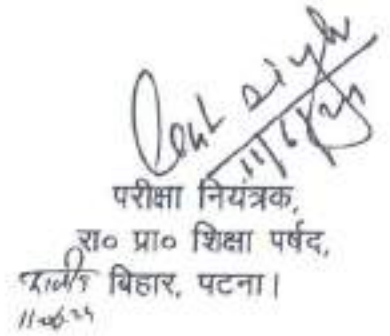 11/6/24
परीक्षा नियंत्रक,
रा० प्रा० शिक्षा पर्षद,
बिहार, पटना।